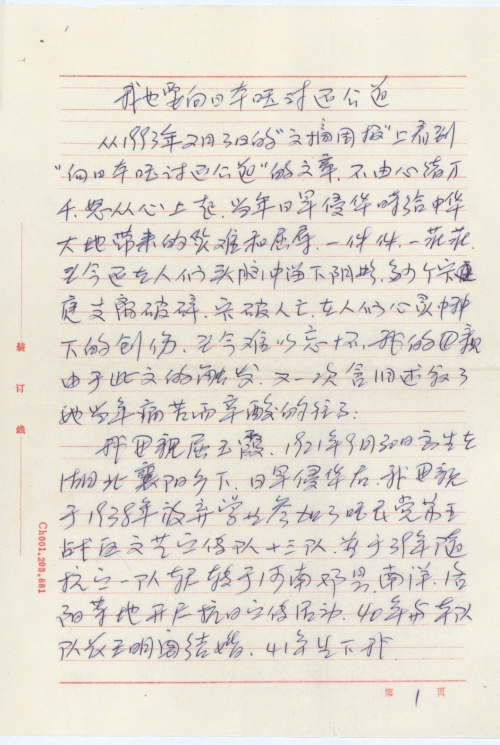 我也要向日本国讨还公道
从1993年2月3日的"文摘周报"上看到
"向日本国讨还公道"的文章,不由心绪万
千,怒从心上起,当年日军侵华时给中华
大地带来的灾难和屈辱,一件件,一茬茬,
至今还在人们头脑中留下阴影,多少个家
庭支离破碎,家破人亡,在人们心灵中种
下的创伤,至今难以忘怀,我的母亲
由于此文的触发,又一次含泪述叙了
她当年痛苦而辛酸的往事:
我母亲屈玉霞,1921年9月30日出生在
湖北襄阳乡下,日军侵华后,我母亲
于1938年放弃学业参加了国民党第五
战区文艺宣传队十三队,并于39年随
抗宣一队辗转于河南邓县,南洋,洛
阳等地开展抗日宣传活动,40年与本队
队友王明阁结婚,41年生下我
装订线
Ch001.203.881
第 1 页